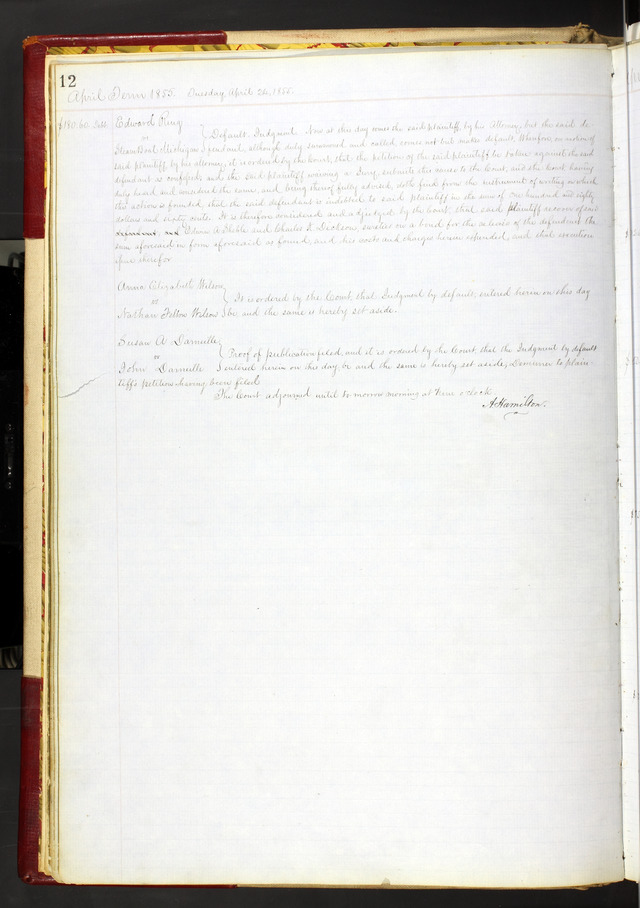 12
April Term 1855. Tuesday, April 24, 1855.
$180.60. Debt Edward Ring
vs } Default. Judgment. Now at this day comes the said plaintiff, by his Attorney, but the said de-
Steam Boat Michigan fendant, although duly summoned and called, comes not but makes default. Wherefore, on motion of
said plaintiff by his attorney, it is ordered by the Court, that the petition of the said plaintiff be taken against the said
defendant as confessed, and the said plaintiff waiving a Jury, submits this cause to the Court, and the Court having
duly heard and considered the same, and being thereof fully advised, doth find from the instrument of writing on which
this action is founded, that the said defendant is indebted to said Plaintiff in the sum of one hundred and eighty
dollars and sixty cents. It is therefore considered and adjudged by the Court, that said plaintiff recover of said
and Edwin A. and Charles Dickson, sureties on a bond for the release of the defendant the
sum aforesaid in form aforesaid as found, and his costs and charges herein expended, and that execution
issue therefor
Anna Elizabeth Wilson
vs } It is ordered by the Court, that Judgment by default, entered herein on this day
Nathan Wilson } be, and the same is hereby set aside.
Susan A. Darneille
vs } Proof of publication filed, and it is ordered by the Court, that the Judgment by default
John Darneille } entered herein on this day, be and the same is hereby set aside, Demurrer to plain-
tiff's petition having been filed
The Court adjourned until to morrow morning at nine o'clock.
A. Hamilton.